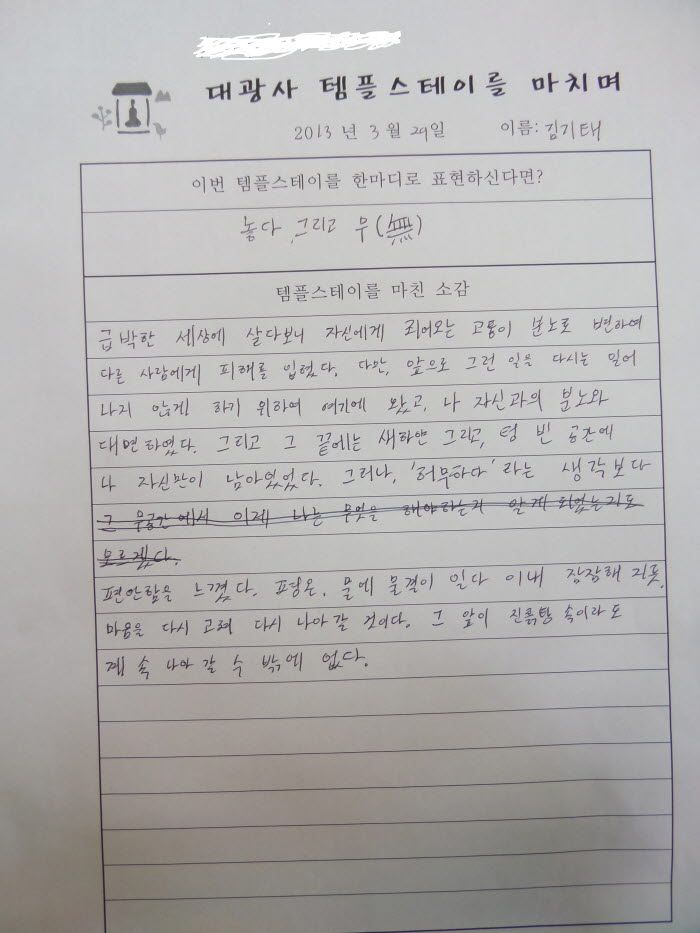 대광사 템플스테이를 마치며
2013 년 3 월 29일 이름: 김기태
이번 템플스테이를 한마디로 표현하신다면?
놓다 그리고 무(無)
템플스테이를 마친 소감
급박한 세상에 살다보니 자신에게 되어오는 고통이 분노로 변하여
다른 사람에게 피해를 입혔다. 다만, 앞으로 그런 일을 다시는 일어
나지 않게 하기 위하여 여기에 왔고, 나 자신과의 분노와
대면하였다. 그리고 그 끝에는 새하얀 그리고, 텅 빈 공간에
나 자신만이 남아있었다. 그러나, '허무하다' 라는 생각보다
그 무공간에서 이제 나는 무엇을 해야하는지 알게 되었는지도
모르겠다.
편안함을 느꼈다. 평온, 물에 물결이 일다 이내 잠잠해 지듯,
마음을 다시 고쳐 다시 나아갈 것이다. 그 앞이 진흙탕 속이라도
계속 나아 갈 수 밖에 없다.